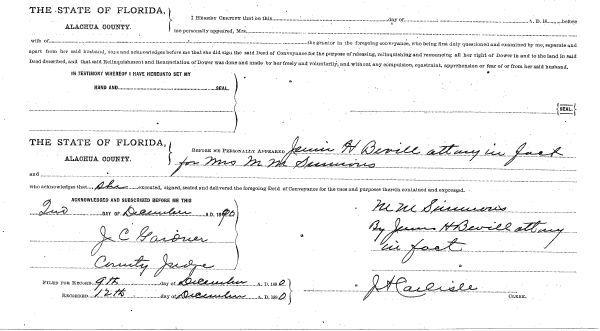 THE STATE OF FLORIDA,
ALACHUA COUNTY.
I HEREBY CERTIFY that on this day of A. D. 18 before
me personally appeared, Mrs.
wife of the grantor in the foregoing conveyance, who being first duly questioned and examined by me, separate and
apart from her said husband, and acknowledges before me that she did sign the said Deed of Conveyance for the purpose of releasing, relinquishing and renouncing all her right of Dower in and to the land in said
Deed described, and that said Relinquishment and Renunciation of Dower was done and made by her freely and voluntarily, and without any compulsion, constraint, apprehension or fear of or from her said husband.
IN TESTIMONY WHEREOF I HAVE HEREUNTO SET MY
HAND AND SEAL
SEAL.
THE STATE OF FLORIDA,
ALACHUA COUNTY.
BEFORE ME PERSONALLY APPEARED H Bevill attorney in fact
for Mrs M M Simmons
and
who acknowledges that she executed, signed, sealed and delivered the foregoing Deed of Conveyance for the uses and purposes therein contained and expressed.
ACKNOWLEDGED AND SUBSCRIBED BEFORE ME THIS
2nd DAY OF December A.D. 1890
J C Gardner
County Judge
M M Simmons
By H Bevill attorney
in fact
FILED FOR RECORD 9th day of December A. D. 1890
RECORDED 12th day of December A. D. 1890
J H Carlisle CLERK.